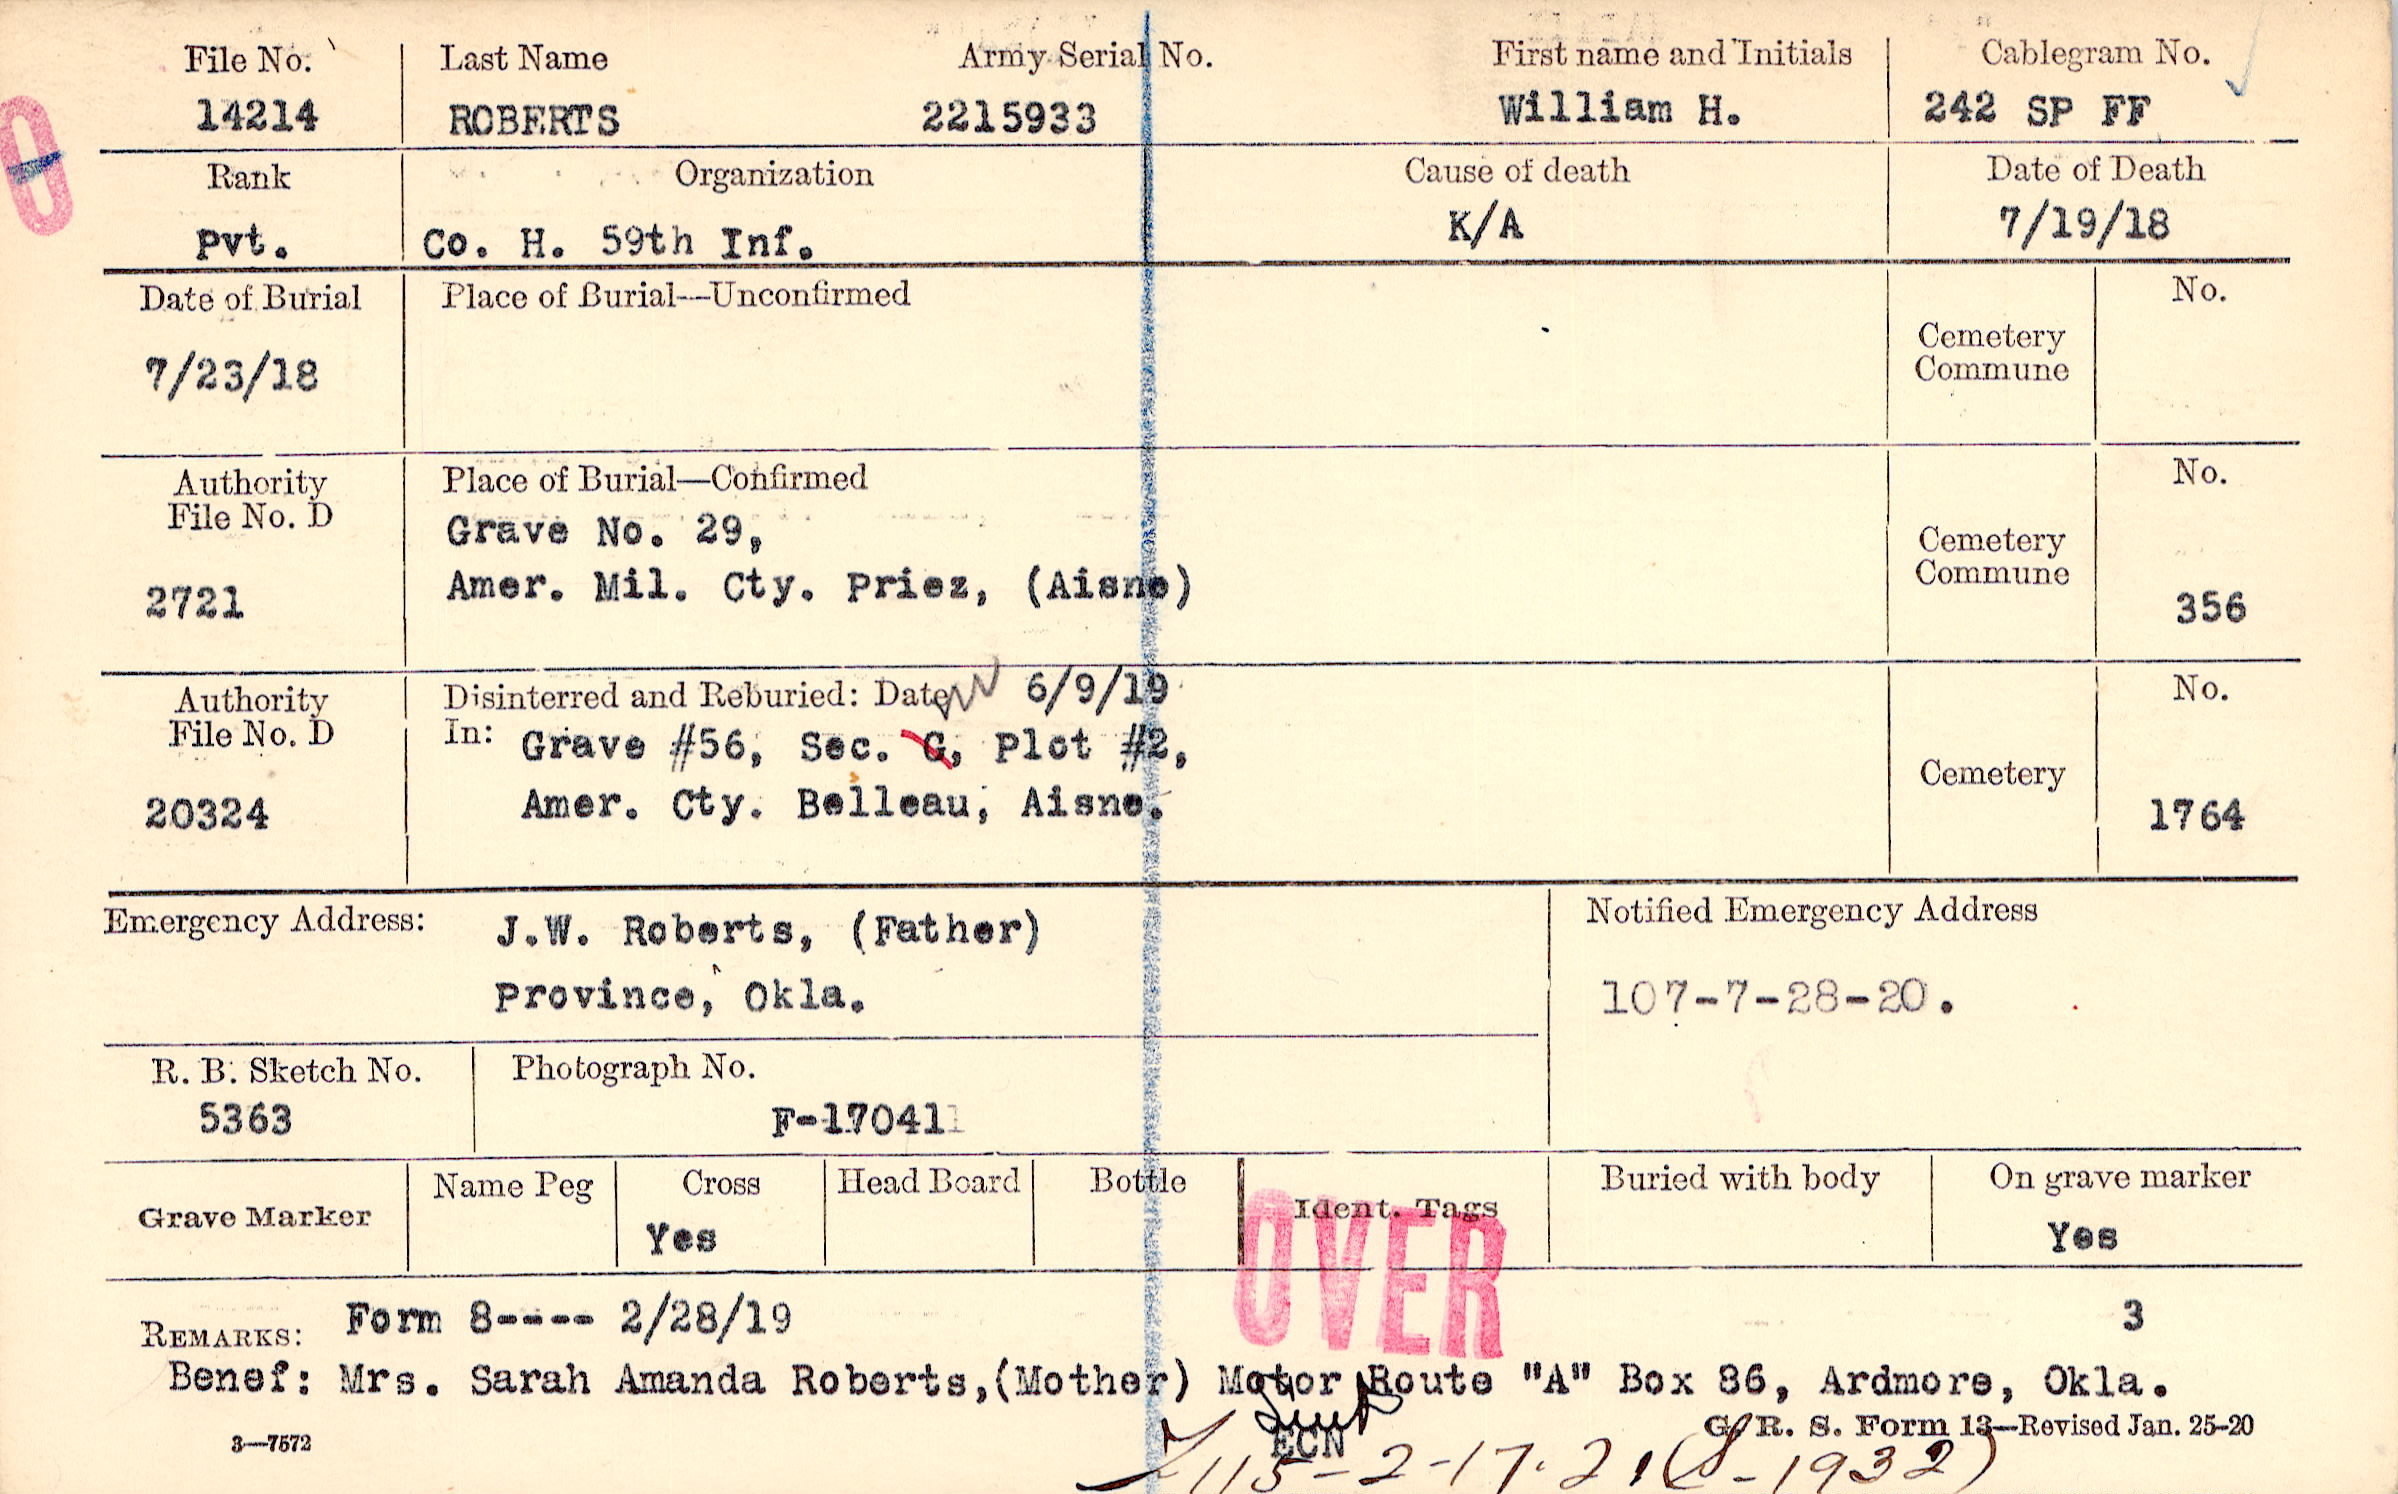 File No. Last Name Army Serial No. First name and Initials Cablegram No.
14214 ROBERTS 2215933 William H. 242 SP FF
Rank Organization Cause of death Date of Death
Pvt. Co. H. 59th Inf. K/A 7/19/18
Date of Burial Place of Burial—Unconfirmed No.
7/23/18 Cemetery
Commune
Authority Place of Burial—Confirmed No.
File No. D Grave No. 29, Cemetery
2721 Amer. Mil. Cty. Priez, (Aisne) Commune 356
Authority Disinterred and Reburied: Date 6/9/19 No.
File No. D In: Grave #56, Sec. G, Plot #2, Cemetery
20324 Amer. Cty. Belleau, Aisne. 1764
Emergency Address: J.W. Roberts, (Father) Notified Emergency Address
Province, Okla. 107-7-28-20.
R. B. Sketch No. Photograph No.
5363 F-170411
Grave Marker Name Peg Cross Head Board Bottle Ident. Tags Buried with body On grave marker
Yes Yes
OVER
REMARKS: Form 8---- 2/28/19 3
Benef: Mrs. Sarah Amanda Roberts,(Mother) Motor Route "A" Box 86, Ardmore, Okla.
G. R. S. Form 13—Revised Jan. 25-20
3—7572 ECN
115-2-17-21 (S-1932)